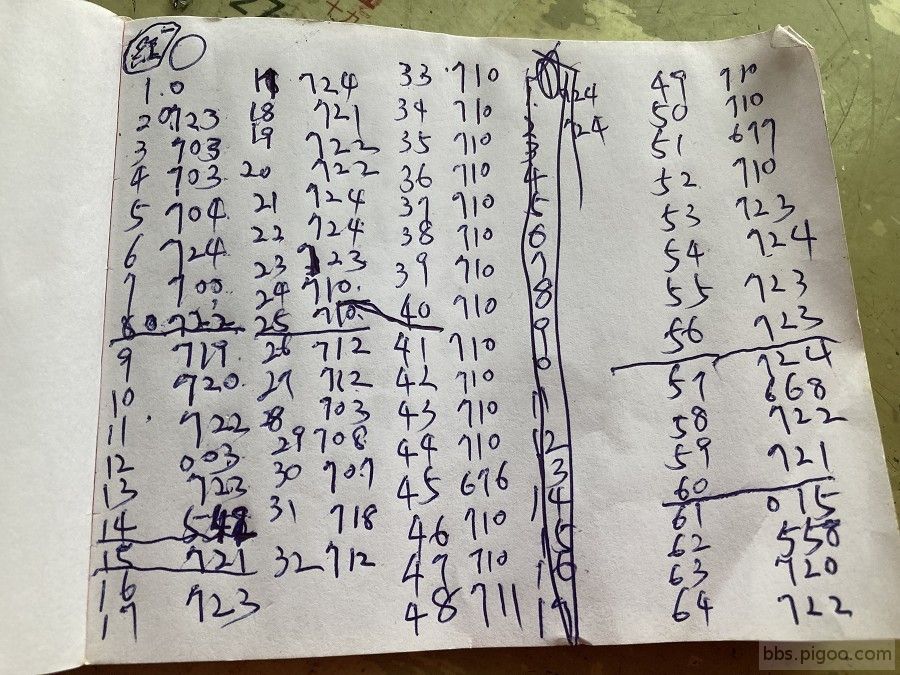 紅 0
1 0
2 0723
3 703
4 703
5 704
6 724
7 700
8 0 722
9 719
10 720
11 722
12 003
13 723
14
15 721
16 723
17
17 724
18 721
19 722
20 722
21 724
22 724
23 723
24 710
25 710
26 712
27 712
28 703
29 708
30 707
31 718
32 712
33 710
34 710
35 710
36 710
37 710
38 710
39 710
40 710
41 710
42 710
43 710
44 710
45 676
46 710
47 710
48 711
724
724
2
3
4
5
6
7
8
9
0
11
12
3
14
15
16
17
49 710
50 710
51 677
52 710
53 723
54 724
55 723
56 723
57 724
58 668
59 722
60 721
61 015
62 558
63 720
64 722
bbs.pigoa.com